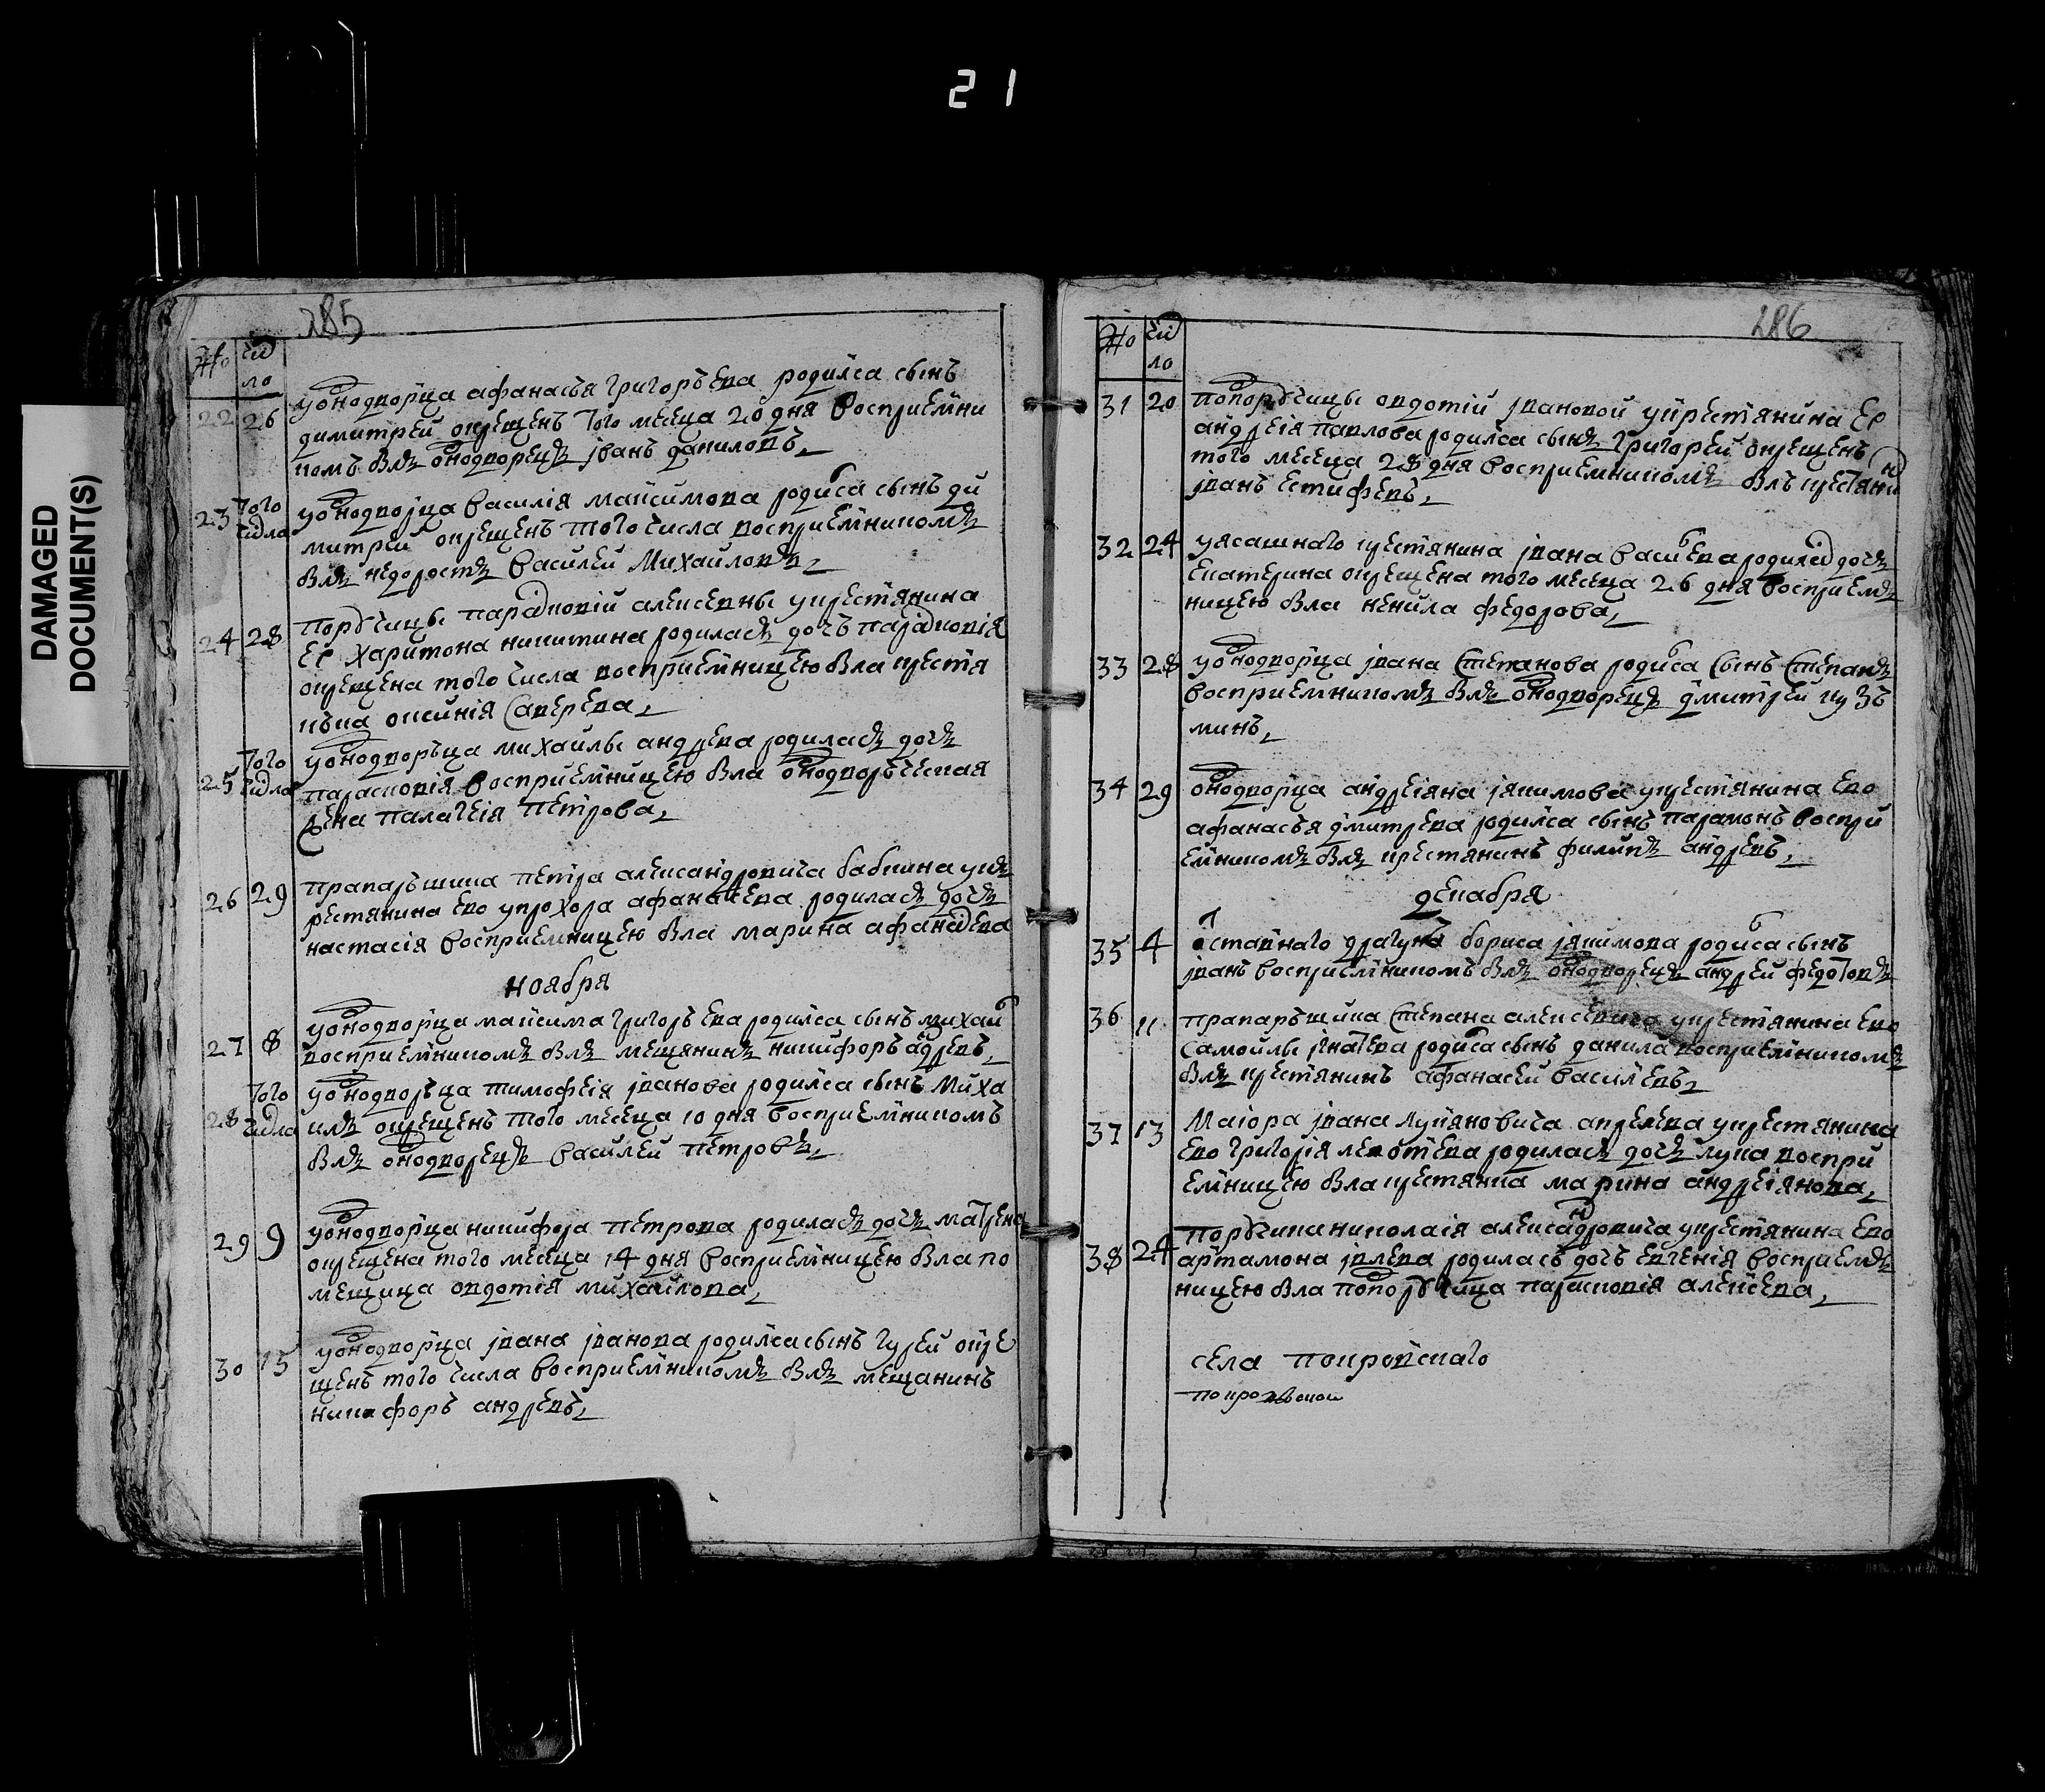 21
DAMAGED
DOCUMENT(S)
285
№ число
22 26 у однодворца афанасья григорьева родился сынъ
димитрей окрещенъ того месеца 20 дня восприемни
комъ былъ однодворецъ іванъ даниловъ
23 того числа у однодворца василія максимова родился сынъ ди
митрей окрещенъ того числа восприемникомъ
былъ недоросль василей михайловъ
24 28 порутчицы парасковіи алексевны у крестьянина
ее харитона никитина родилась дочь парасковія
окрещена того числа восприемницею была крестья
нька оксинія саверева
25 того числа у однодворъца михайлы андрева родилась дочь
парасковія восприемницею была однодворъческая
жена палагея петрова
26 29 прапаръшика петра александровича бабкина у кѣ
рестянина ево у прохора афанасева родилась дочь
настасія восприемницею была марина афанасева
ноября
27 8 у однодворца максима григоръева родился сынъ михайл
восприемникомъ былъ мещянинъ никифоръ адревъ
28 того числа у однодворъца тимофея іванова родился сынъ миха
илъ окрещенъ того месеца 10 дня восприемникомъ
былъ однодворецъ василей петровъ
29 9 у однодворца никифора петрова родилась дочь матрена
окрещена того месеца 14 дня восприемницею была по
мещица овдотія михайлова
30 15 у однодворца івана іванова родился сынъ гурей окре
щенъ того числа восприемникомъ былъ мещанинъ
никифоръ андревъ
286
№ число
31 20 попорутчицы овдотіи івановой у крестьянина ее
андреія павлова родился сынъ григорей окрещенъ
того месеца 28 дня восприемникомъ былъ крестянин
іванъ естифевъ
32 24 у ясашнаго крестянина івана василева родилась дочь
екатерина окрещена того месеца 26 дня восприемъ
ницею была ненила федорова
33 28 у однодворца івана степанова родился сынъ степанъ
восприемникомъ былъ однодворецъ дмитрей кузь
минъ
34 29 однодворца андреіяна іякимова у крестьянина ево
афанасья дмитрева родился сынъ парамонъ воспри
емникомъ былъ крестянинъ филипъ андревъ
декабря
35 4 отставнаго драгуна бориса іякимова родился сынъ
іванъ восприемникомъ былъ однодворецъ андрей федотовъ
36 11 прапаръшика степана алексевича у крестьянина ево
самойлы игнатева родился сынъ данила восприемникомъ
былъ крестянинъ афанасей василевъ
37 13 маіора івана лукяновича у крестянина
ево григорія родилась дочь воспри
емницею была крестянка марина андреіянова
38 24 порутчика николаія александровича у крестянина ево
артамона родилась дочь евгенія восприемъ
ницею была попорутчица парасковія алексева
села покровскаго